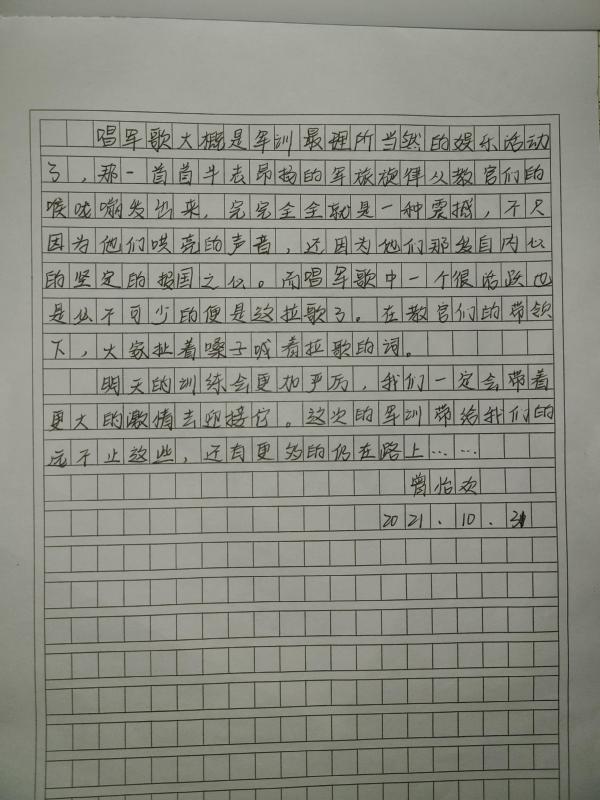 唱军歌大概是军训最理所当然的娱乐活动
了，那一首首斗志昂扬的军旅旋律从教官们的
喉咙嘣发出来，完完全全就是一种震撼，不只
因为他们哄亮的声音，还因为他们那发自内心
的坚定的报国之心。而唱军歌中一个很活跃也
是必不可少的便是这拉歌了。在教官们的带领
下，大家扯着嗓子喊着拉歌的词。
明天的训练会更加严厉，我们一定会带着
更大的激情去迎接它。这次的军训带给我们的
远不止这些，还有更多的仍在路上……
曾怡欢
2021.10.31